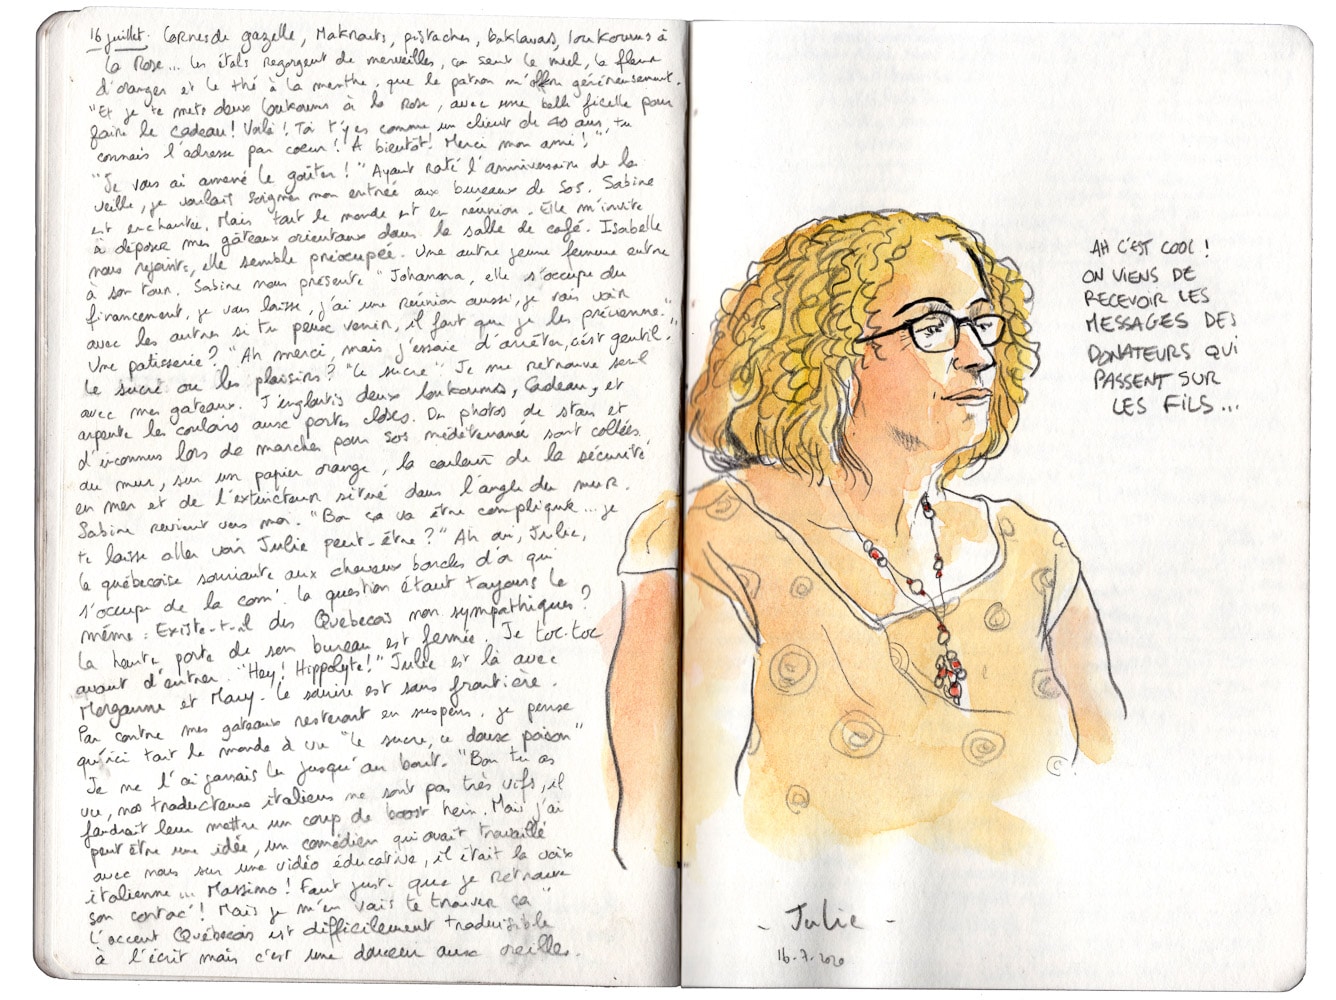 16 juillet. Cornes de gazelle, Makrouts, pistaches, baklavas, loukoums à
la Rose... les étals regorgent de merveilles, ça sent le miel, la fleur
d'oranger et le thé à la menthe, que le patron m'offre généreusement.
"Et je te mets deux loukoums à la Rose, avec une belle ficelle pour
faire le cadeau! Voilà! Toi t'y es comme un client de 40 ans, tu
connais l'adresse par coeur! A bientôt! Merci mon ami!"
"Je vous ai amené le goûter!" Ayant raté l'anniversaire de la
veille, je voulais soigner mon entrée aux bureaux de SOS. Sabine
est enchantée. Mais tout le monde est en réunion. Elle m'invite
à déposer mes gâteaux orientaux dans la salle de café. Isabelle
nous rejoints, elle semble préoccupée. Une autre jeune femme entre
à son tour. Sabine nous présente "Johanna, elle s'occupe du
financement, je vous laisse, j'ai une réunion aussi, je vais voir
avec les autres si tu peux venir, il faut que je les prévienne."
Une patisserie? "Ah merci, mais j'essaie d'arrêter, c'est gentil."
Le sucre ou les plaisirs? "Le sucre" Je me retrouve seul
avec mes gateaux. J'engloutis deux loukoums, Cadeau, et
arpente les couloirs aux portes closes. Des photos de stars et
d'inconnus lors de marches pour sos méditerranée sont collées
au mur, sur un papier orange, la couleur de la sécurité
en mer et de l'extincteur situé dans l'angle du mur.
Sabine revient vers moi. "Bon ça va être compliqué... je
te laisse aller voir Julie peut-être?" Ah oui, Julie,
la québecoise souriante aux cheveux boucles d'or qui
s'occupe de la com'. La question étant toujours la
même: Existe-t-il des Québecois non sympathiques?
La haute porte de son bureau est fermée. Je toc-toc
avant d'entrer. "Hey! Hippolyte!" Julie est là avec
Morganne et Mary. Le sourire est sans frontière.
Par contre mes gateaux resteront en suspens. Je pense
qu'ici tout le monde à vu "le sucre, ce doux poison"
Je ne l'ai jamais lu jusqu'au bout. "Bon tu as
vu, nos traducteurs italiens ne sont pas très vifs, il
faudrait leur mettre un coup de boost hein. Mais j'ai
peut être une idée, un comédien qui avait travaillé
avec nous sur une vidéo éducative, il était la voix
italienne... Massimo! Faut just. que je retrouve
son contac'! Mais je m'en vais te trouver ça"
L'accent Québecois est difficilement traduisible
à l'écrit mais c'est une douceur aux oreilles.
AH C'EST COOL!
ON VIENS DE
RECEVOIR LES
MESSAGES DES
DONATEURS QUI
PASSENT SUR
LES FILS...
- Julie -
16.7.2020